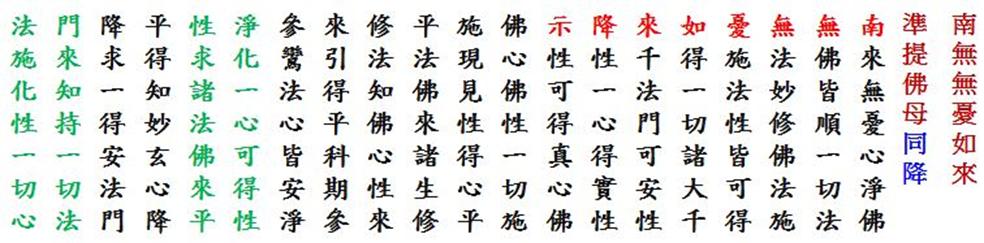 南無無憂如來
準提佛母同降
南來無憂心淨佛
無佛皆順一切法
無法妙修佛法施
憂施法性皆可得
如得一切諸大千
來千法門可安性
降性一心得實性
示性可得真心佛
佛心佛性一切施
施現見性得心平
平法佛來諸生修
修法知佛心性來
來引得平科期參
參鸞法心皆安淨
淨化一心可得性
性求諸法佛來平
平得知妙玄心降
降求一得安法門
門來知持一切法
法施化性一切心